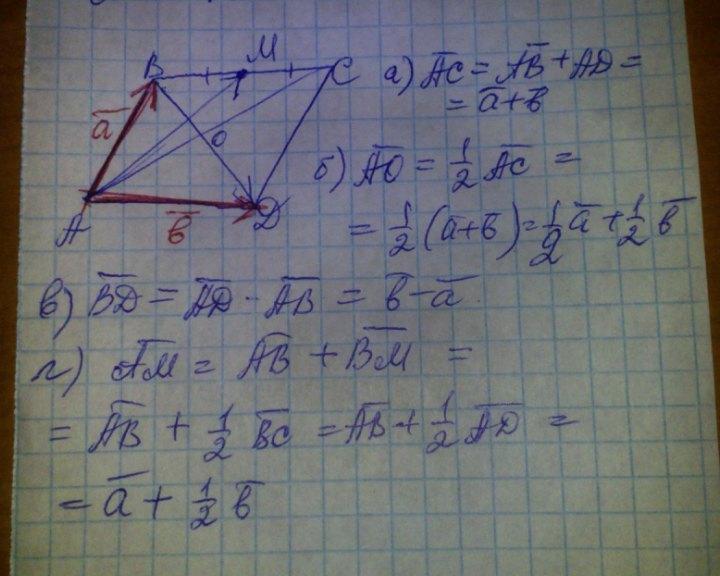 B M C
a̅ O
A b̅ D
а) A̅C̅ = A̅B̅ + AD =
= a̅ + b̅
б) A̅O̅ = 1/2 A̅C̅ =
= 1/2 (a̅ + b̅) = 1/2 a̅ + 1/2 b̅
в) B̅D̅ = A̅D̅ - A̅B̅ = b̅ - a̅.
г) A̅M̅ = A̅B̅ + B̅M̅ =
= A̅B̅ + 1/2 B̅C̅ = A̅B̅ + 1/2 A̅D̅ =
= a̅ + 1/2 b̅